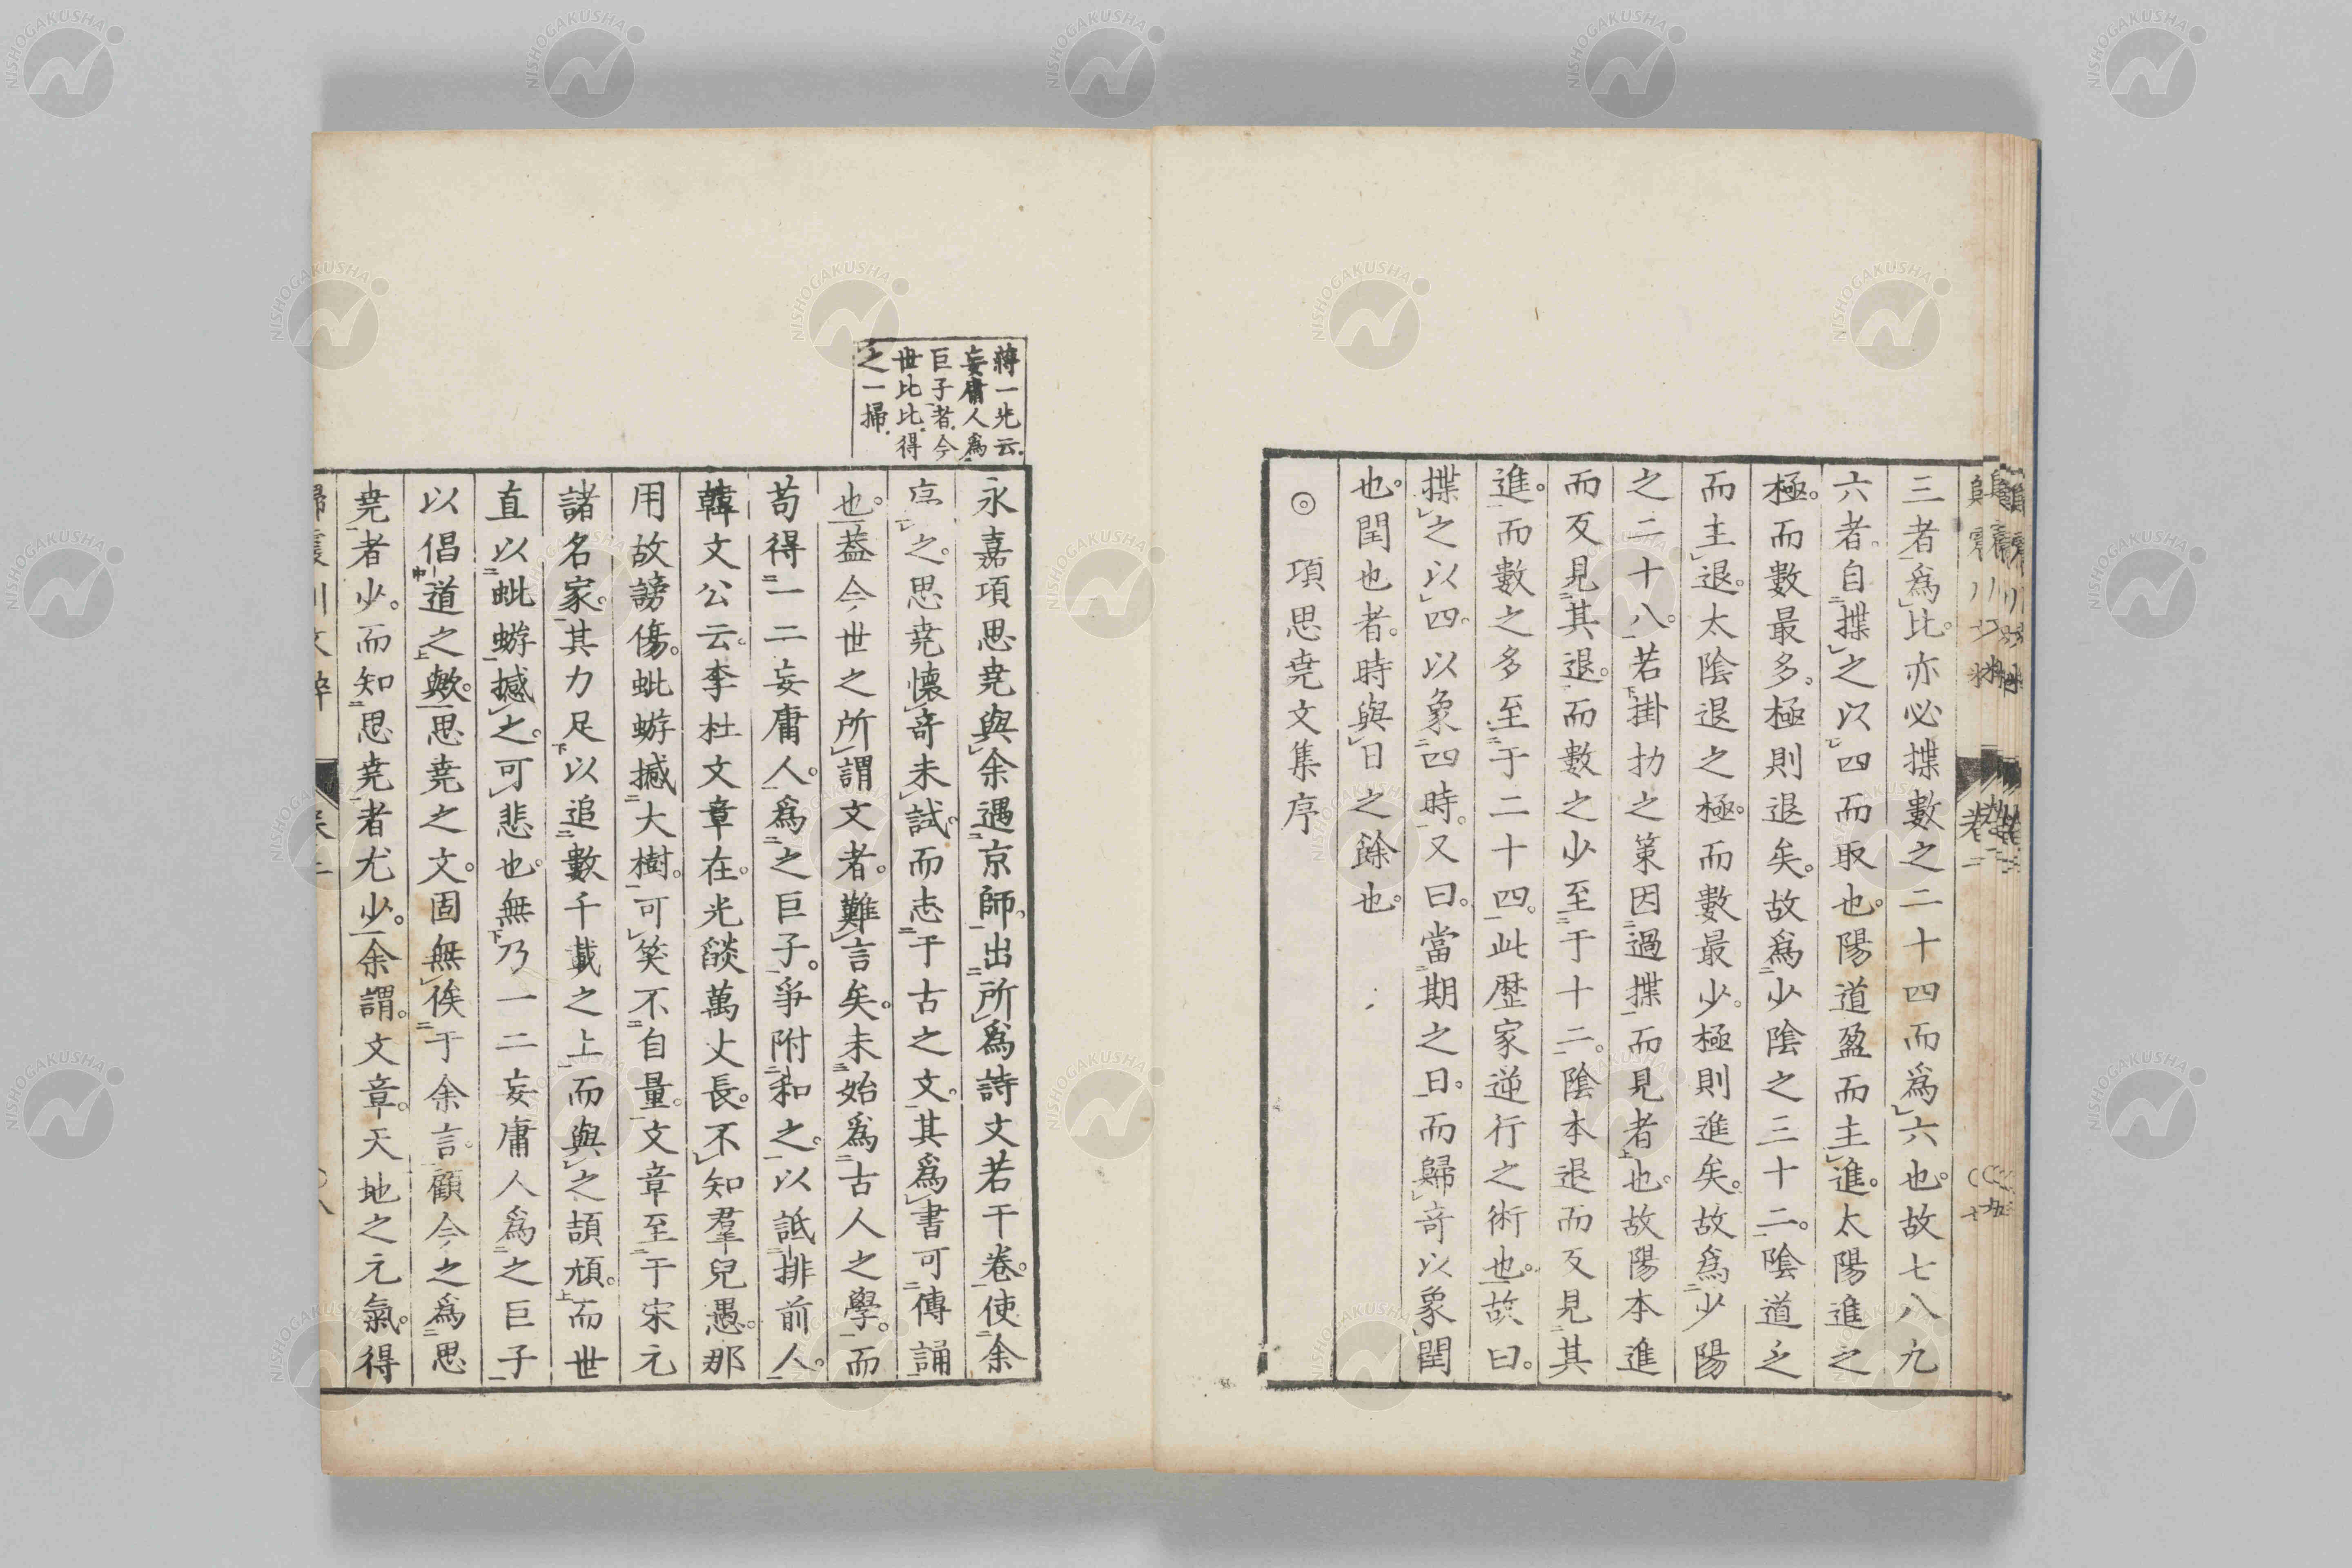 三者爲比。亦必揲數之二十四而爲六也。故七八九
六者。自揲之以四而取也。陽道盈而主進。太陽進之
極。而數最多。極則退矣。故爲少陰之三十二。陰道乏
而主退。太陰退之極。而數最少。極則進矣。故爲少陽
之二十八。若掛扐之策因過揲而見者也。故陽本進
而反見其退。而數之少至于十二。陰本退而反見其
進。而數之多至于二十四。此歷家逆行之術也。故曰。
揲之以四。以象四時。又曰。當期之日。而歸奇以象閏
也。閏也者。時與日之餘也。
◎ 項思堯文集序
蔣一光云。
妄庸人爲
巨子者。今
世比比。得
之一掃。
永嘉項思堯與余遇京師。出所爲詩文若干卷。使余
序之。思堯懷奇未試。而志于古之文。其爲書可傳誦
也。葢今世之所謂文者。難言矣。未始爲古人之學。而
苟得一二妄庸人。爲之巨子。爭附和之。以詆排前人。
韓文公云。李杜文章在。光燄萬丈長。不知羣兒愚。那
用故謗傷。蚍蜉撼大樹。可笑不自量。文章至于宋元
諸名家。其力足以追數千載之上。而與之頡頏。而世
直以蚍蜉撼之。可悲也。無乃一二妄庸人爲之巨子
以倡道之歟。思堯之文。固無俟于余言。顧今之爲思
堯者少。而知思堯者尤少。余謂。文章。天地之元氣。得